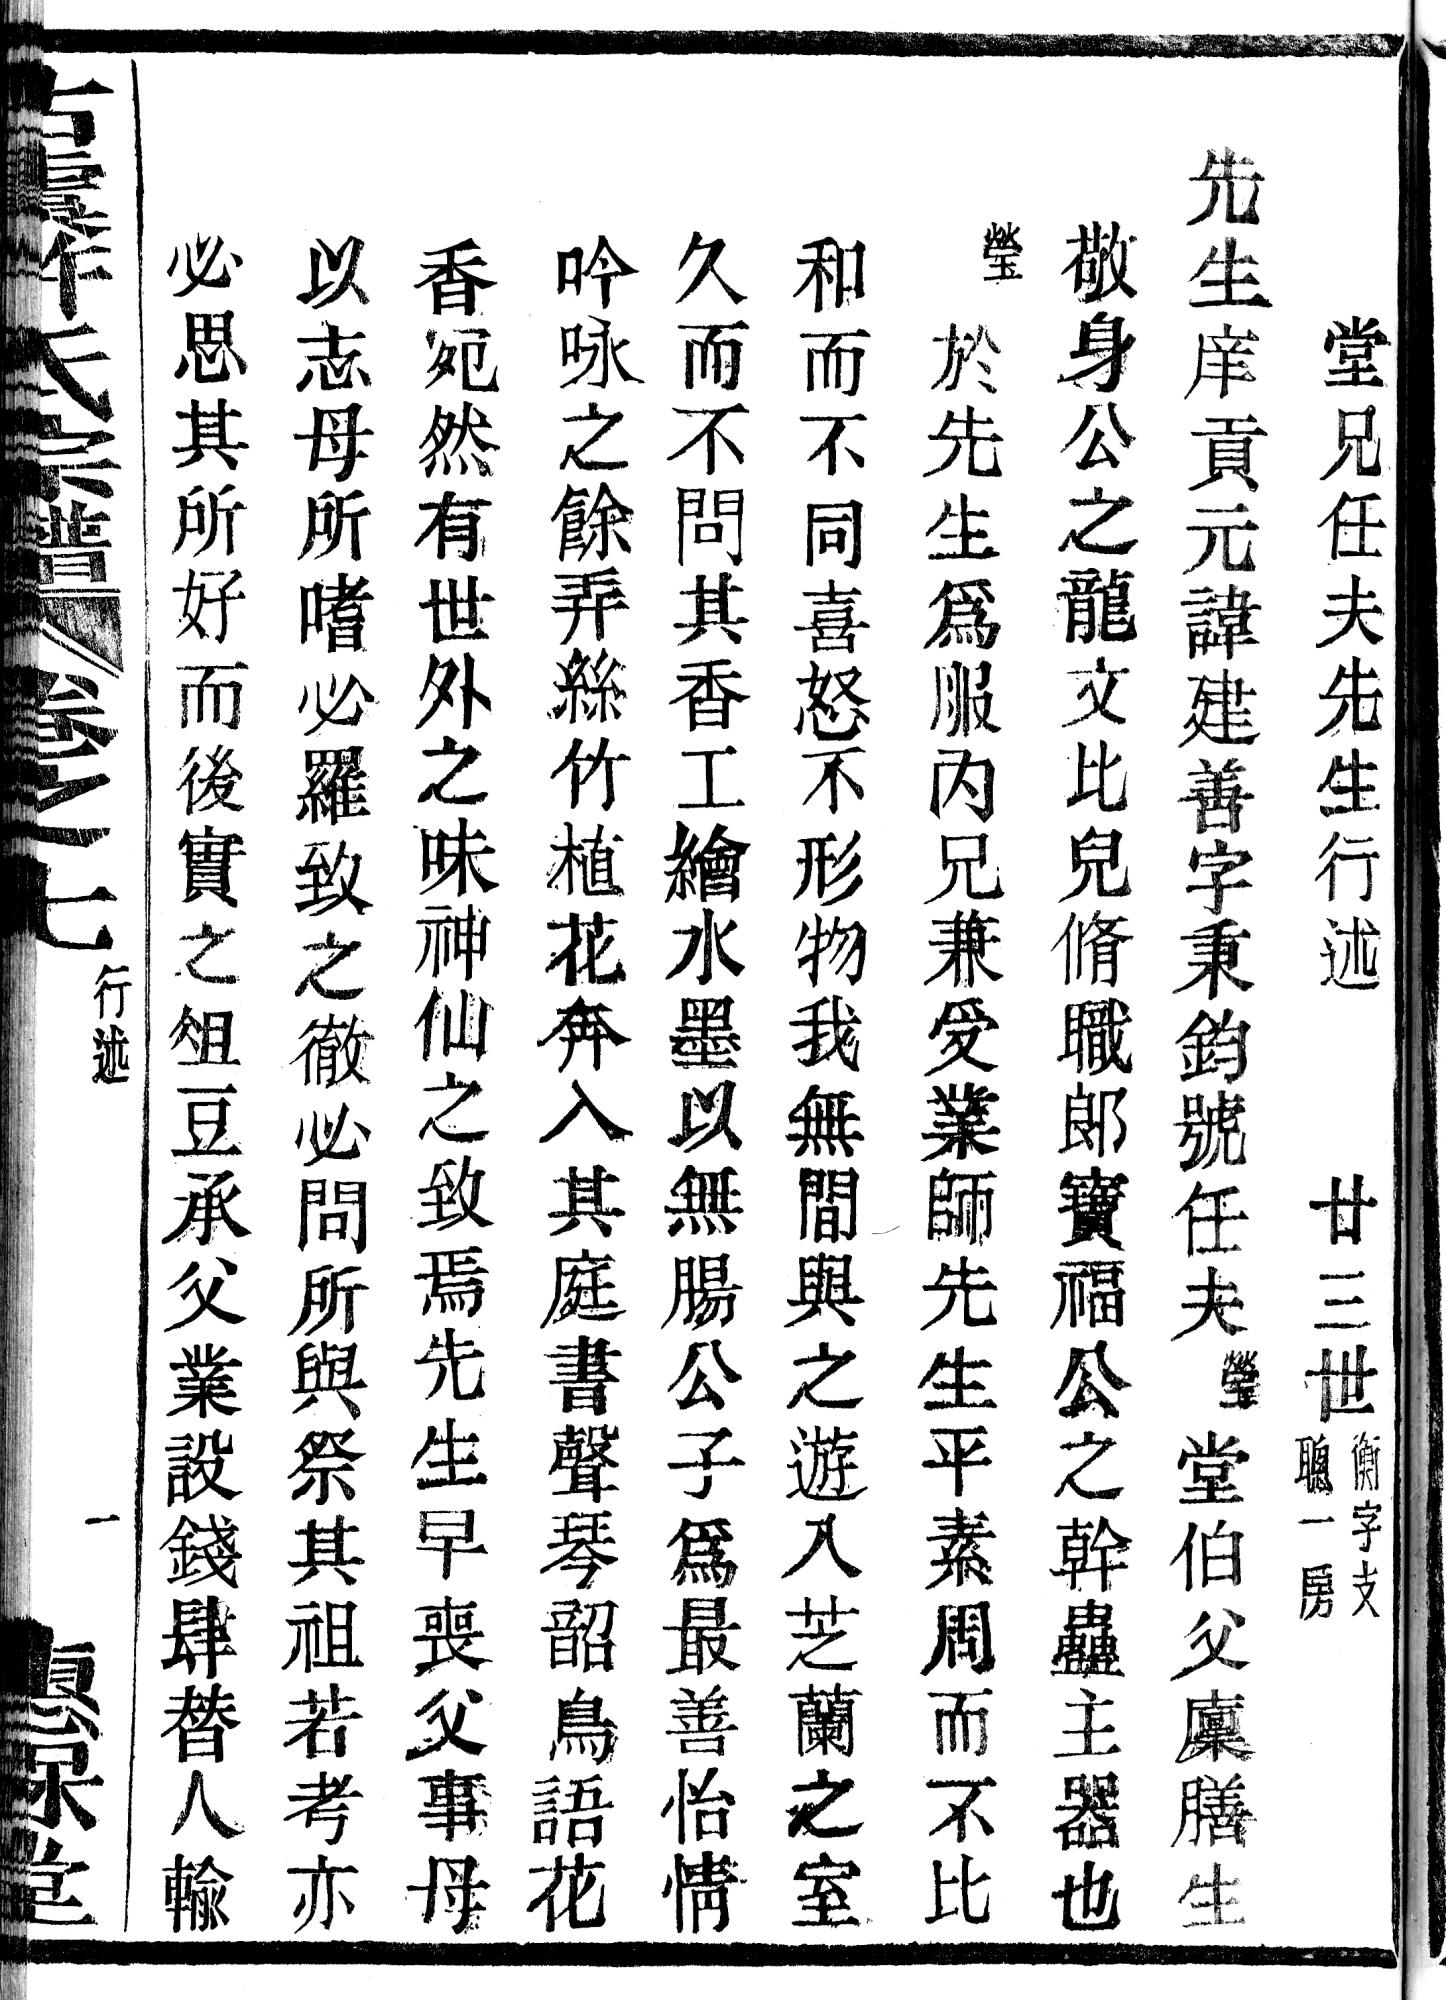 堂兄任夫先生行述　廿三世 衡字支 聰一房
先生庠貢元諱建善字秉鈞號任夫瑩堂伯父廩膳生
敬身公之龍文比兒脩職郎寶福公之幹蠱主器也
瑩於先生爲服內兄兼受業師先生平素周而不比
和而不同喜怒不形物我無間與之遊入芝蘭之室
久而不問其香工繪水墨以無腸公子爲最善怡情
吟咏之餘弄絲竹植花卉入其庭書聲琴韶鳥語花
香宛然有世外之味神仙之致焉先生早喪父事母
以志母所嗜必羅致之徹必問所與祭其祖若考亦
必思其所好而後實之俎豆承父業設錢肆替人輸
氏宗譜 卷之七 行述 一 堂